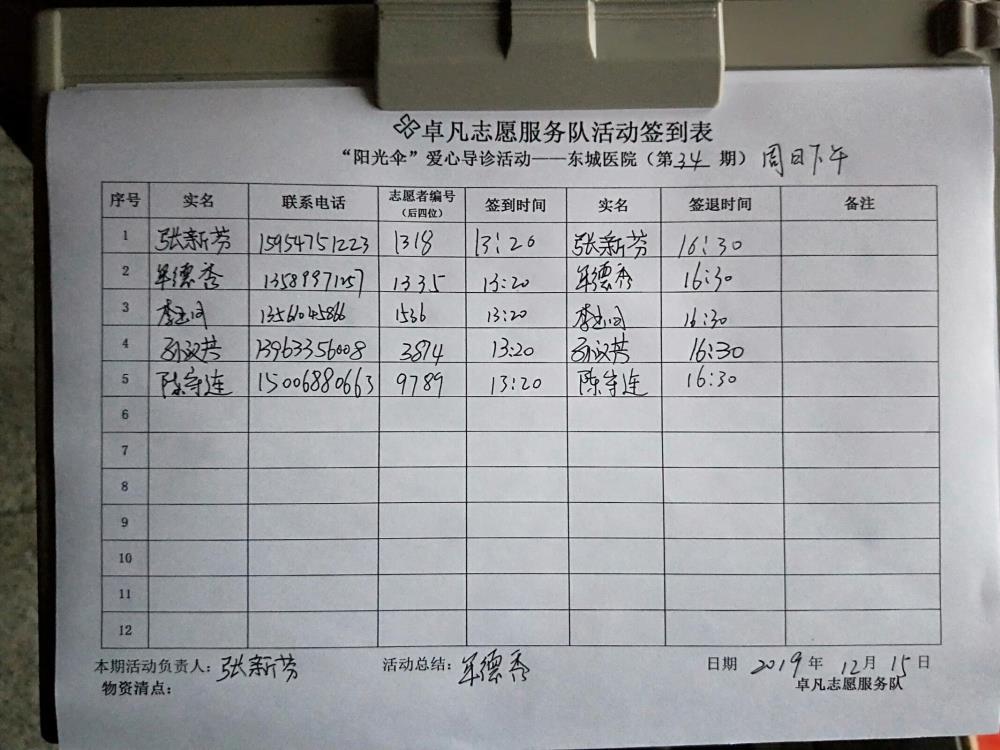 卓凡志愿服务队活动签到表
“阳光伞”爱心导诊活动——东城医院（第34期）周日下午
序号 实名 联系电话 志愿者编号（后四位） 签到时间 实名 签退时间 备注
1 张新芬 15954751223 1318 13:20 张新芬 16:30
2 牟德秀 13589971257 1335 13:20 牟德秀 16:30
3 13561045866 1536 13:20 16:30
4 孙汉芸 13963356008 3874 13:20 孙汉芸 16:30
5 陈守连 15006880663 9789 13:20 陈守连 16:30
6
7
8
9
10
11
12
本期活动负责人：张新芬 活动总结：牟德秀 日期 2019年12月15日
物资清点： 卓凡志愿服务队